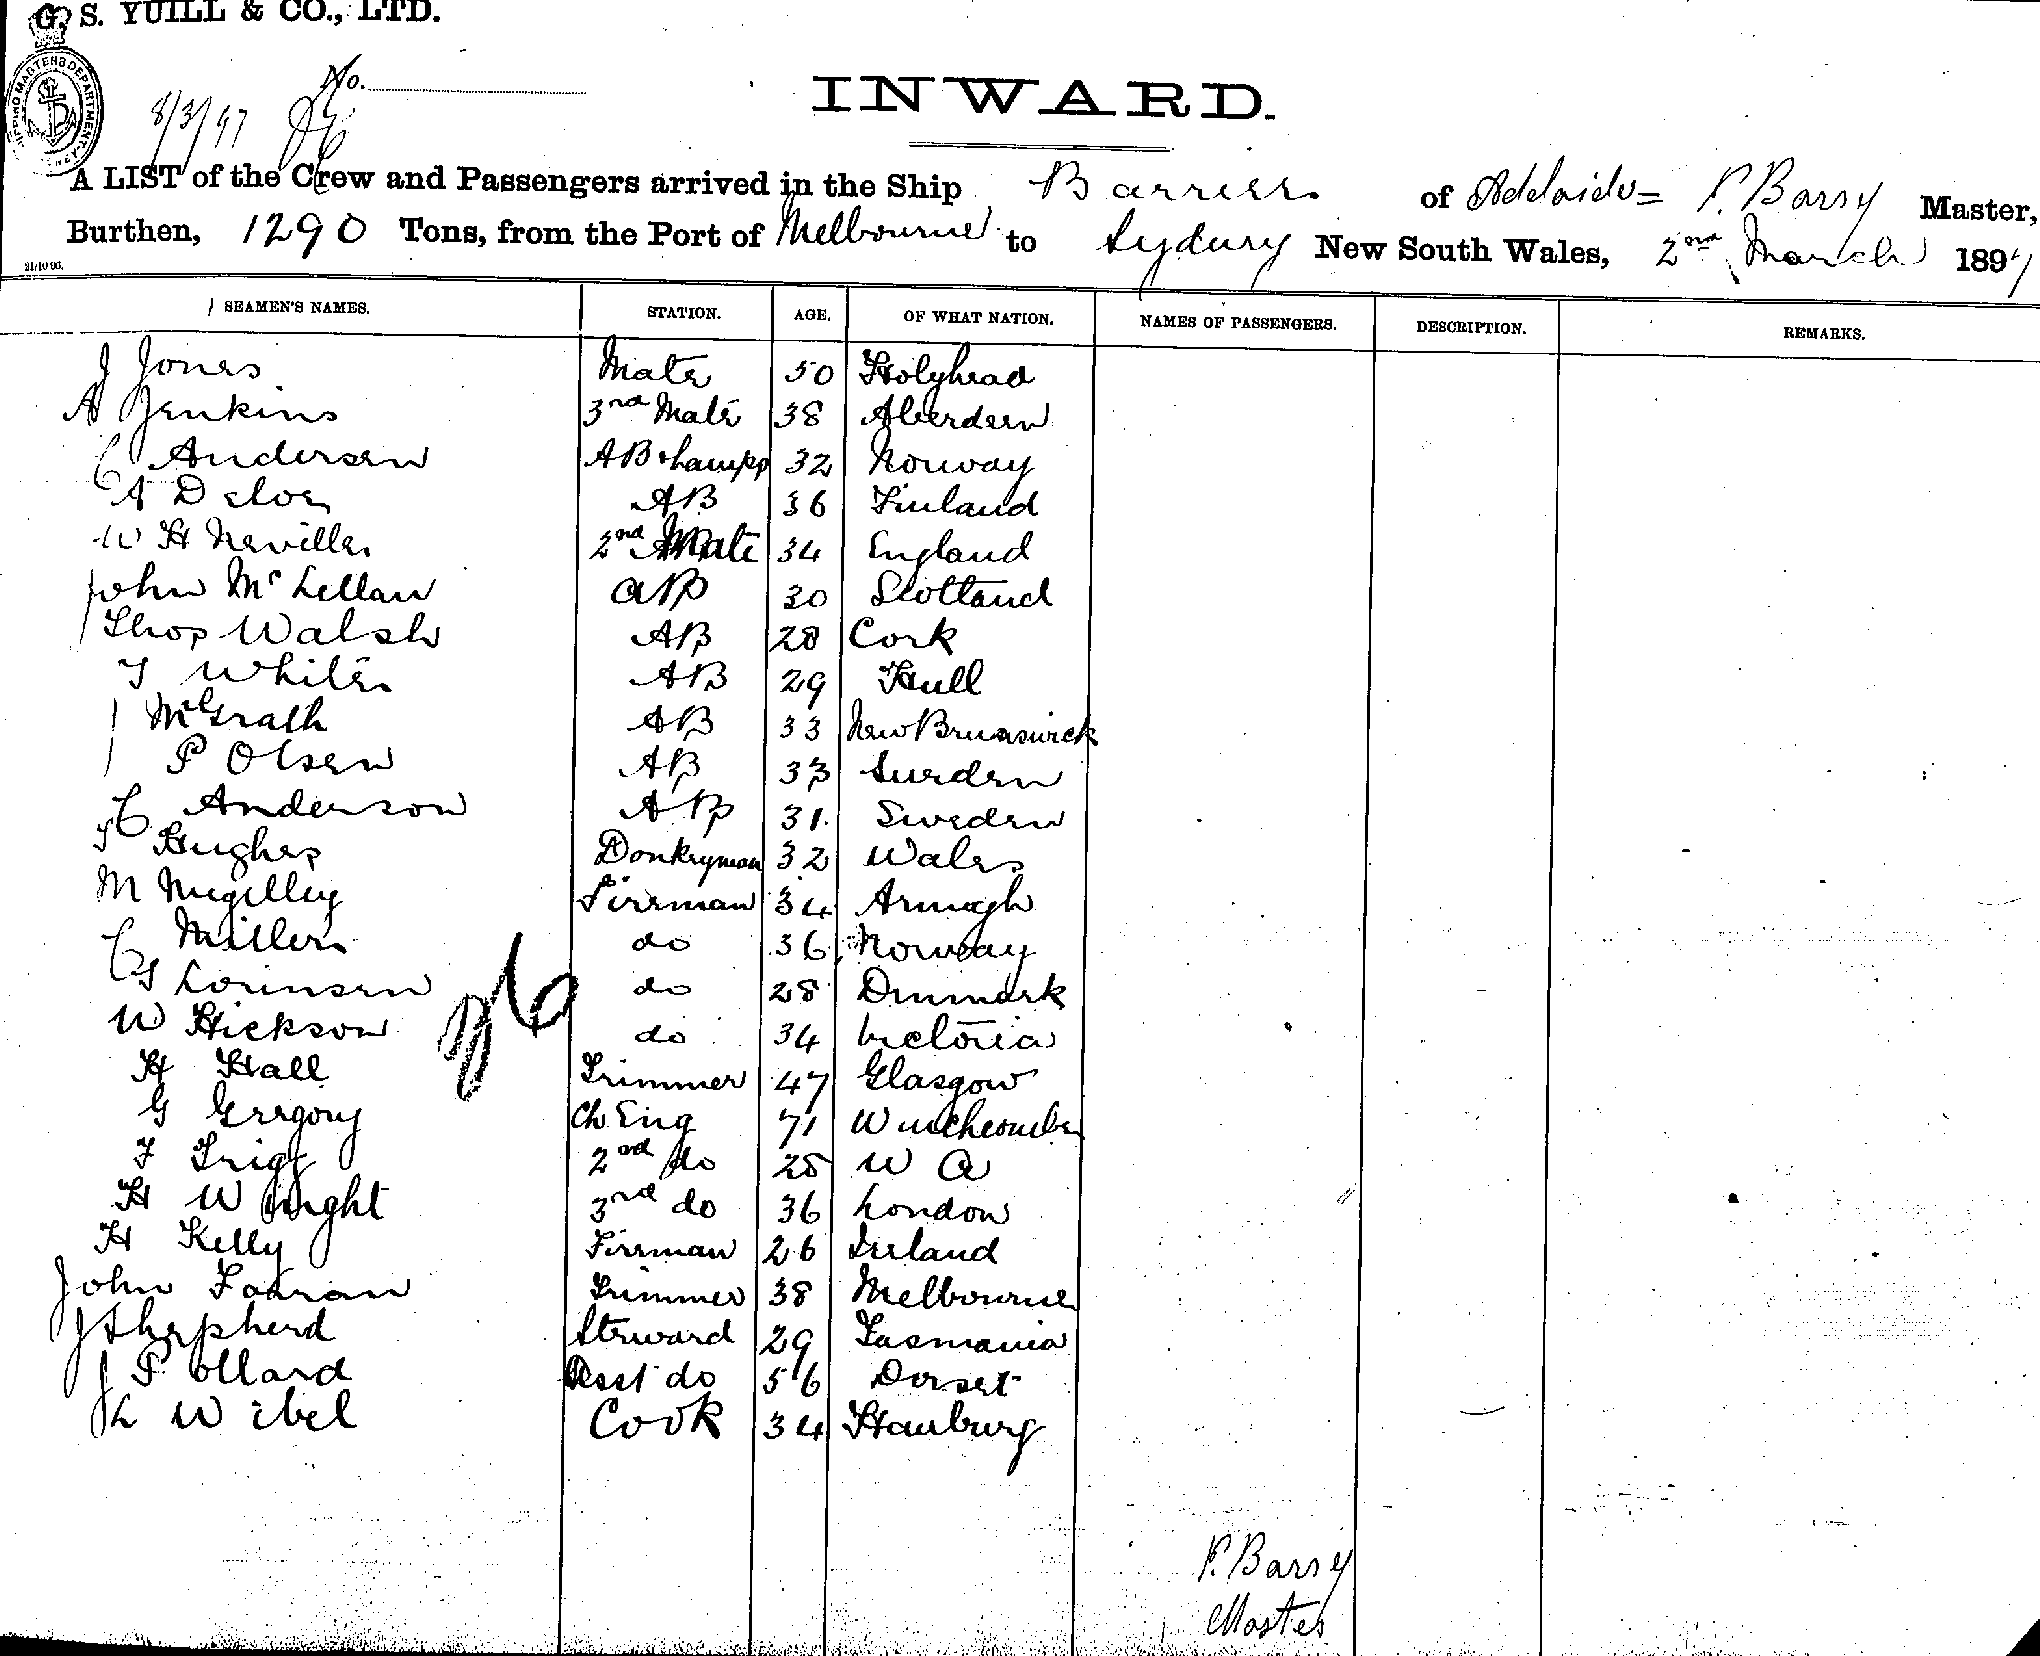 G. S. YUILL & CO., LTD.
SHIPPING MASTERS DEPARTMENT
No.
8/3/97
INWARD.
A LIST of the Crew and Passengers arrived in the Ship Barrier of Adelaide P. Barry Master,
Burthen, 1290 Tons, from the Port of Melbourne to Sydney New South Wales, 2nd March 1897
21/10 96.
SEAMEN'S NAMES. STATION. AGE. OF WHAT NATION. NAMES OF PASSENGERS. DESCRIPTION. REMARKS.
J Jones Mate 50 Holyhead
A Jenkins 3rd Mate 38 Aberdeen
C Andersen AB & lamps 32 Norway
A AB 36 Finland
W H Neville 2nd Mate 34 England
John McLellan AB 30 Scotland
Thos Walsh AB 28 Cork
T White AB 29 Hull
McGrath AB 33 New Brunswick
P Olsen AB 33 Sweden
C Anderson AB 31 Sweden
T Hughes Donkeyman 32 Wales
M Fireman 34 Armagh
C Miller do 36 Norway
G Lorinsen do 28 Denmark
W Hickson do 34 Victoria
H Hall Trimmer 47 Glasgow
G Gregory Ch Eng 71 Winchcombe
F Trigg 2nd do 28 W A
H Wright 3rd do 36 London
H Kelly Fireman 26 Ireland
John Trimmer 38 Melbourne
J Shepherd Steward 29 Tasmania
J Pollard Asst do 56 Dorset
L Wibel Cook 34 Hamburg
P. Barry
Master